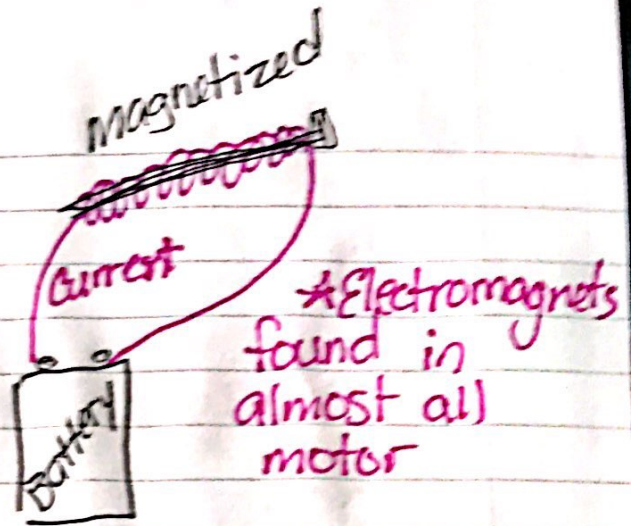 magnetized
current
*Electromagnets
found in
almost all
motor
Battery